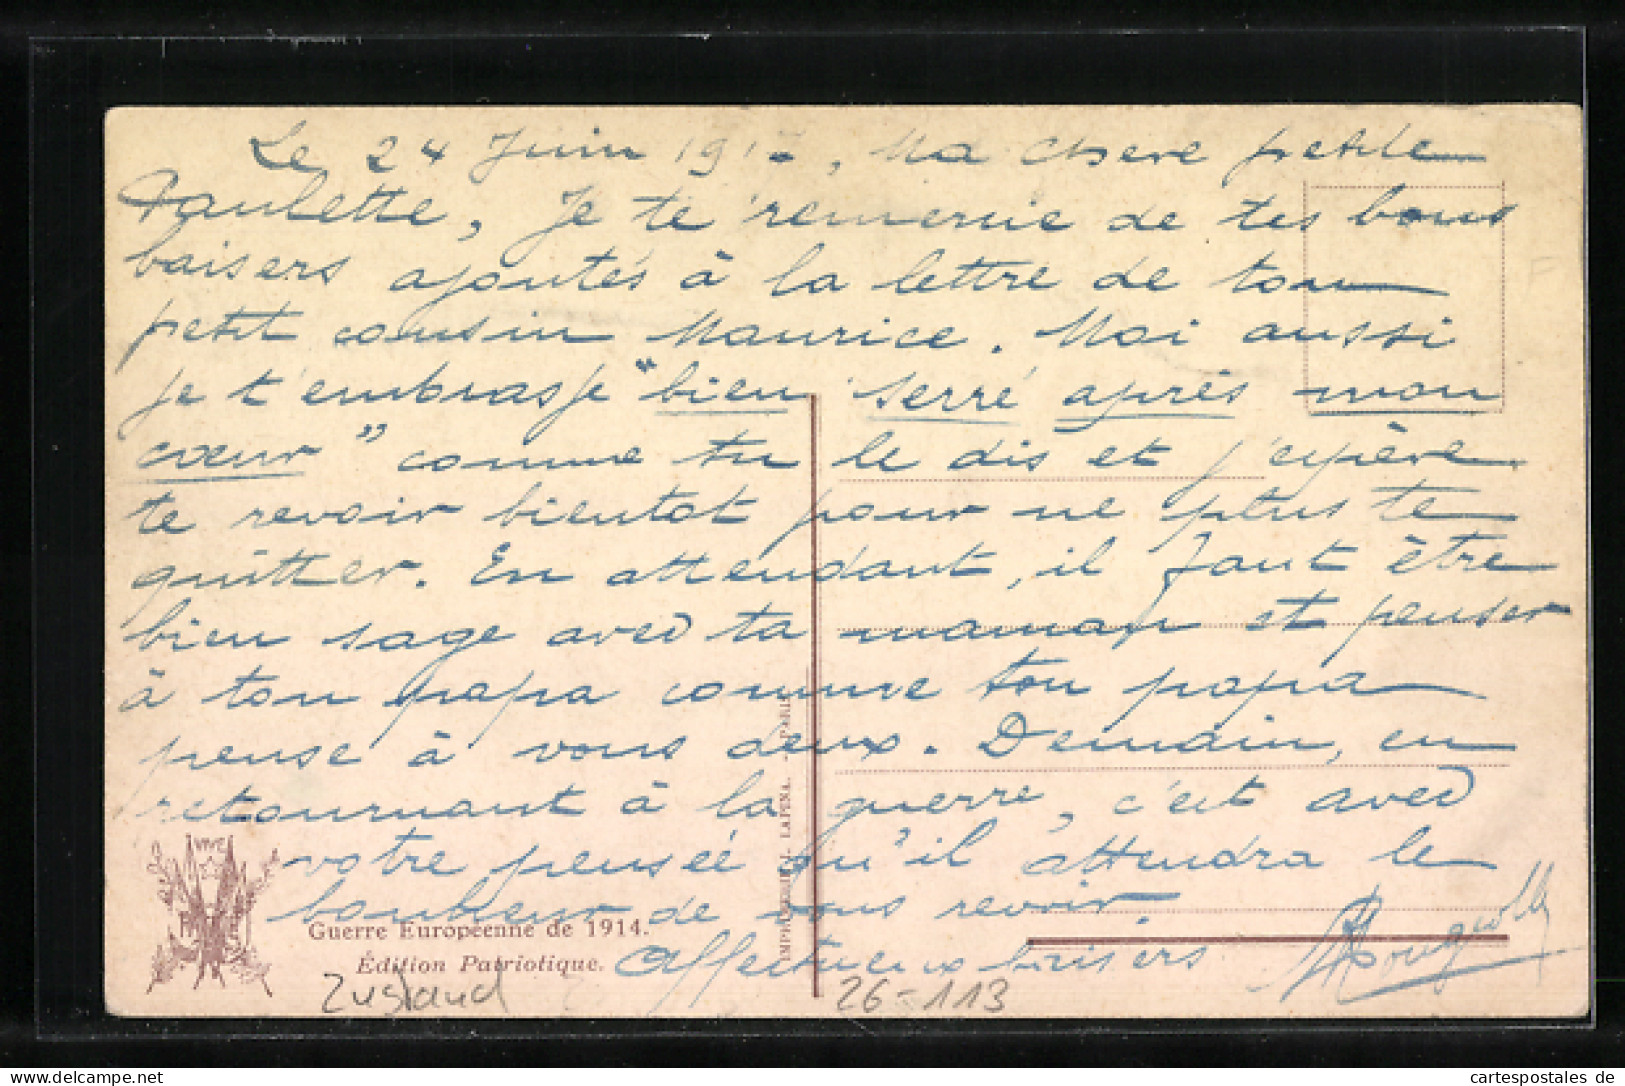 Le 24 Juin 191 , Ma chere petite
Paulette, Je te remercie de tes bons
baisers ajoutés à la lettre de ton
petit cousin Maurice. Moi aussi
je t'embrasse "bien serré après mon
cœur" comme tu le dis et j'espère
te revoir bientot pour ne plus te
quitter. En attendant, il faut être
bien sage avec ta maman et penser
à ton papa comme ton papa
pense à vous deux. Demain, en
retournant à la guerre, c'est avec
votre pensée qu'il attendra le
bonheur de vous revoir.
Affectueux baisers
VIVE
Guerre Européenne de 1914.
Édition Patriotique.
LAPINA. - PARIS
Zustand
26-113
delcampe.net
cartespostales de